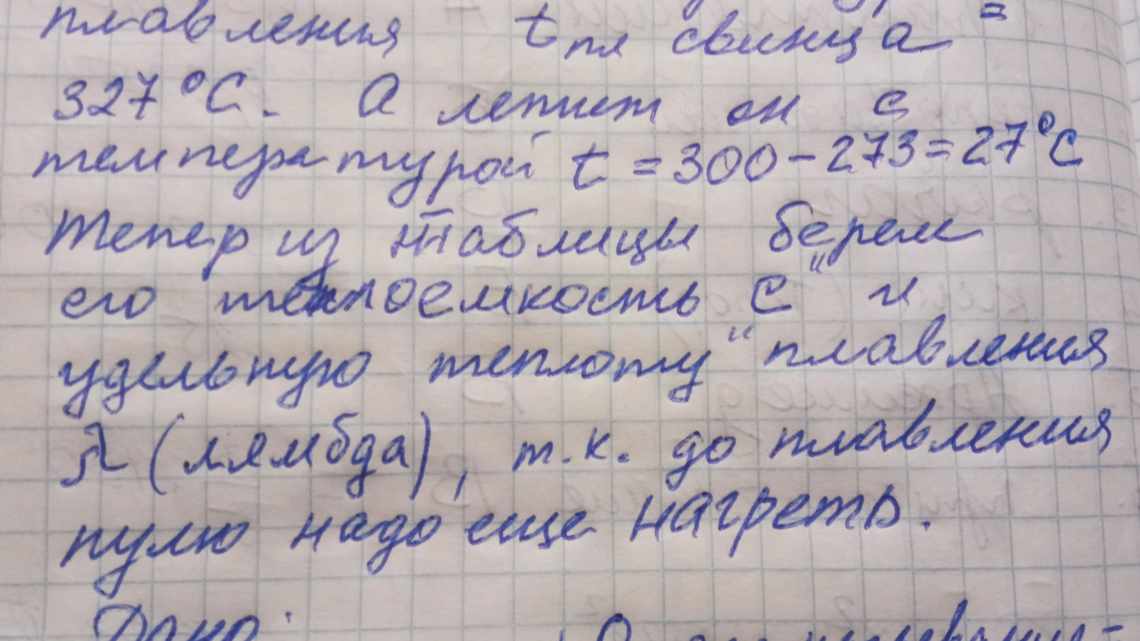 плавления t пл свинца =
327 °С. А летит он с
температурой t = 300 - 273 = 27 °С
Тепер из таблицы берем
его теплоемкость "С" и
удельную теплоту "плавления
λ (лямбда), т.к. до плавления
пулю надо еще нагреть.
Дано: